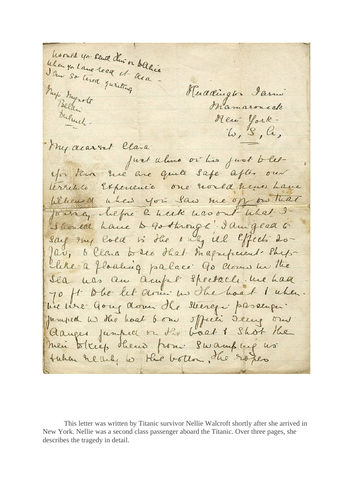 would you send this on to Alice
when you have read it dear
I am so tired writing
Miss Mycroft
Berlin
Huddington Farm
Mamaroneck
New York
U, S, A,
My dearest Clara
Just a line or two just to let
you know we are quite safe after our
terrible experience one would never have
believed when you saw me off on that
journey before a week was out what I
should have to go through. I am glad to
say my cold is the only ill effects so
far, O Clara to see that magnificent Ship
like a floating palace go down in the
sea was an awful spectacle we had
70 ft to be let down in the boat & when
we were going down the steerage passengers
jumped in the boat & one officer seeing our
danger jumped in the boat & shot the
men to keep them from swamping us
& when nearly to the bottom, the ropes
This letter was written by Titanic survivor Nellie Walcroft shortly after she arrived in
New York. Nellie was a second class passenger aboard the Titanic. Over three pages, she
describes the tragedy in detail.